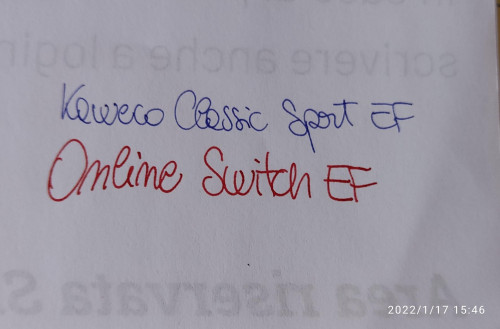 scrivere anche a login
Kaweco Classic Sport EF
Online Switch EF
Area riservata S
2022/1/17 15:46